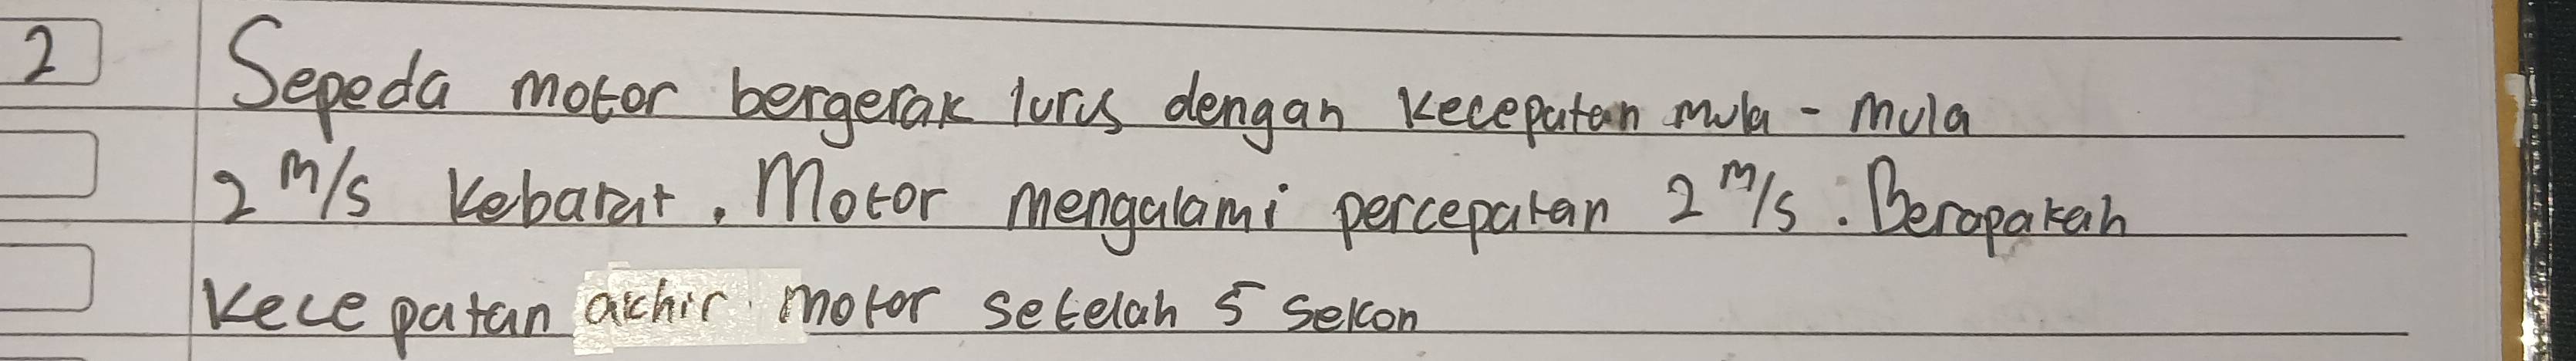 2 Sepeda motor bergerak lurus dengan kecepatan mula - mula
2 m/s kebarat. Motor mengalami percepatan 2 m/s. Berapakah
kecepatan akhir motor setelah 5 sekon